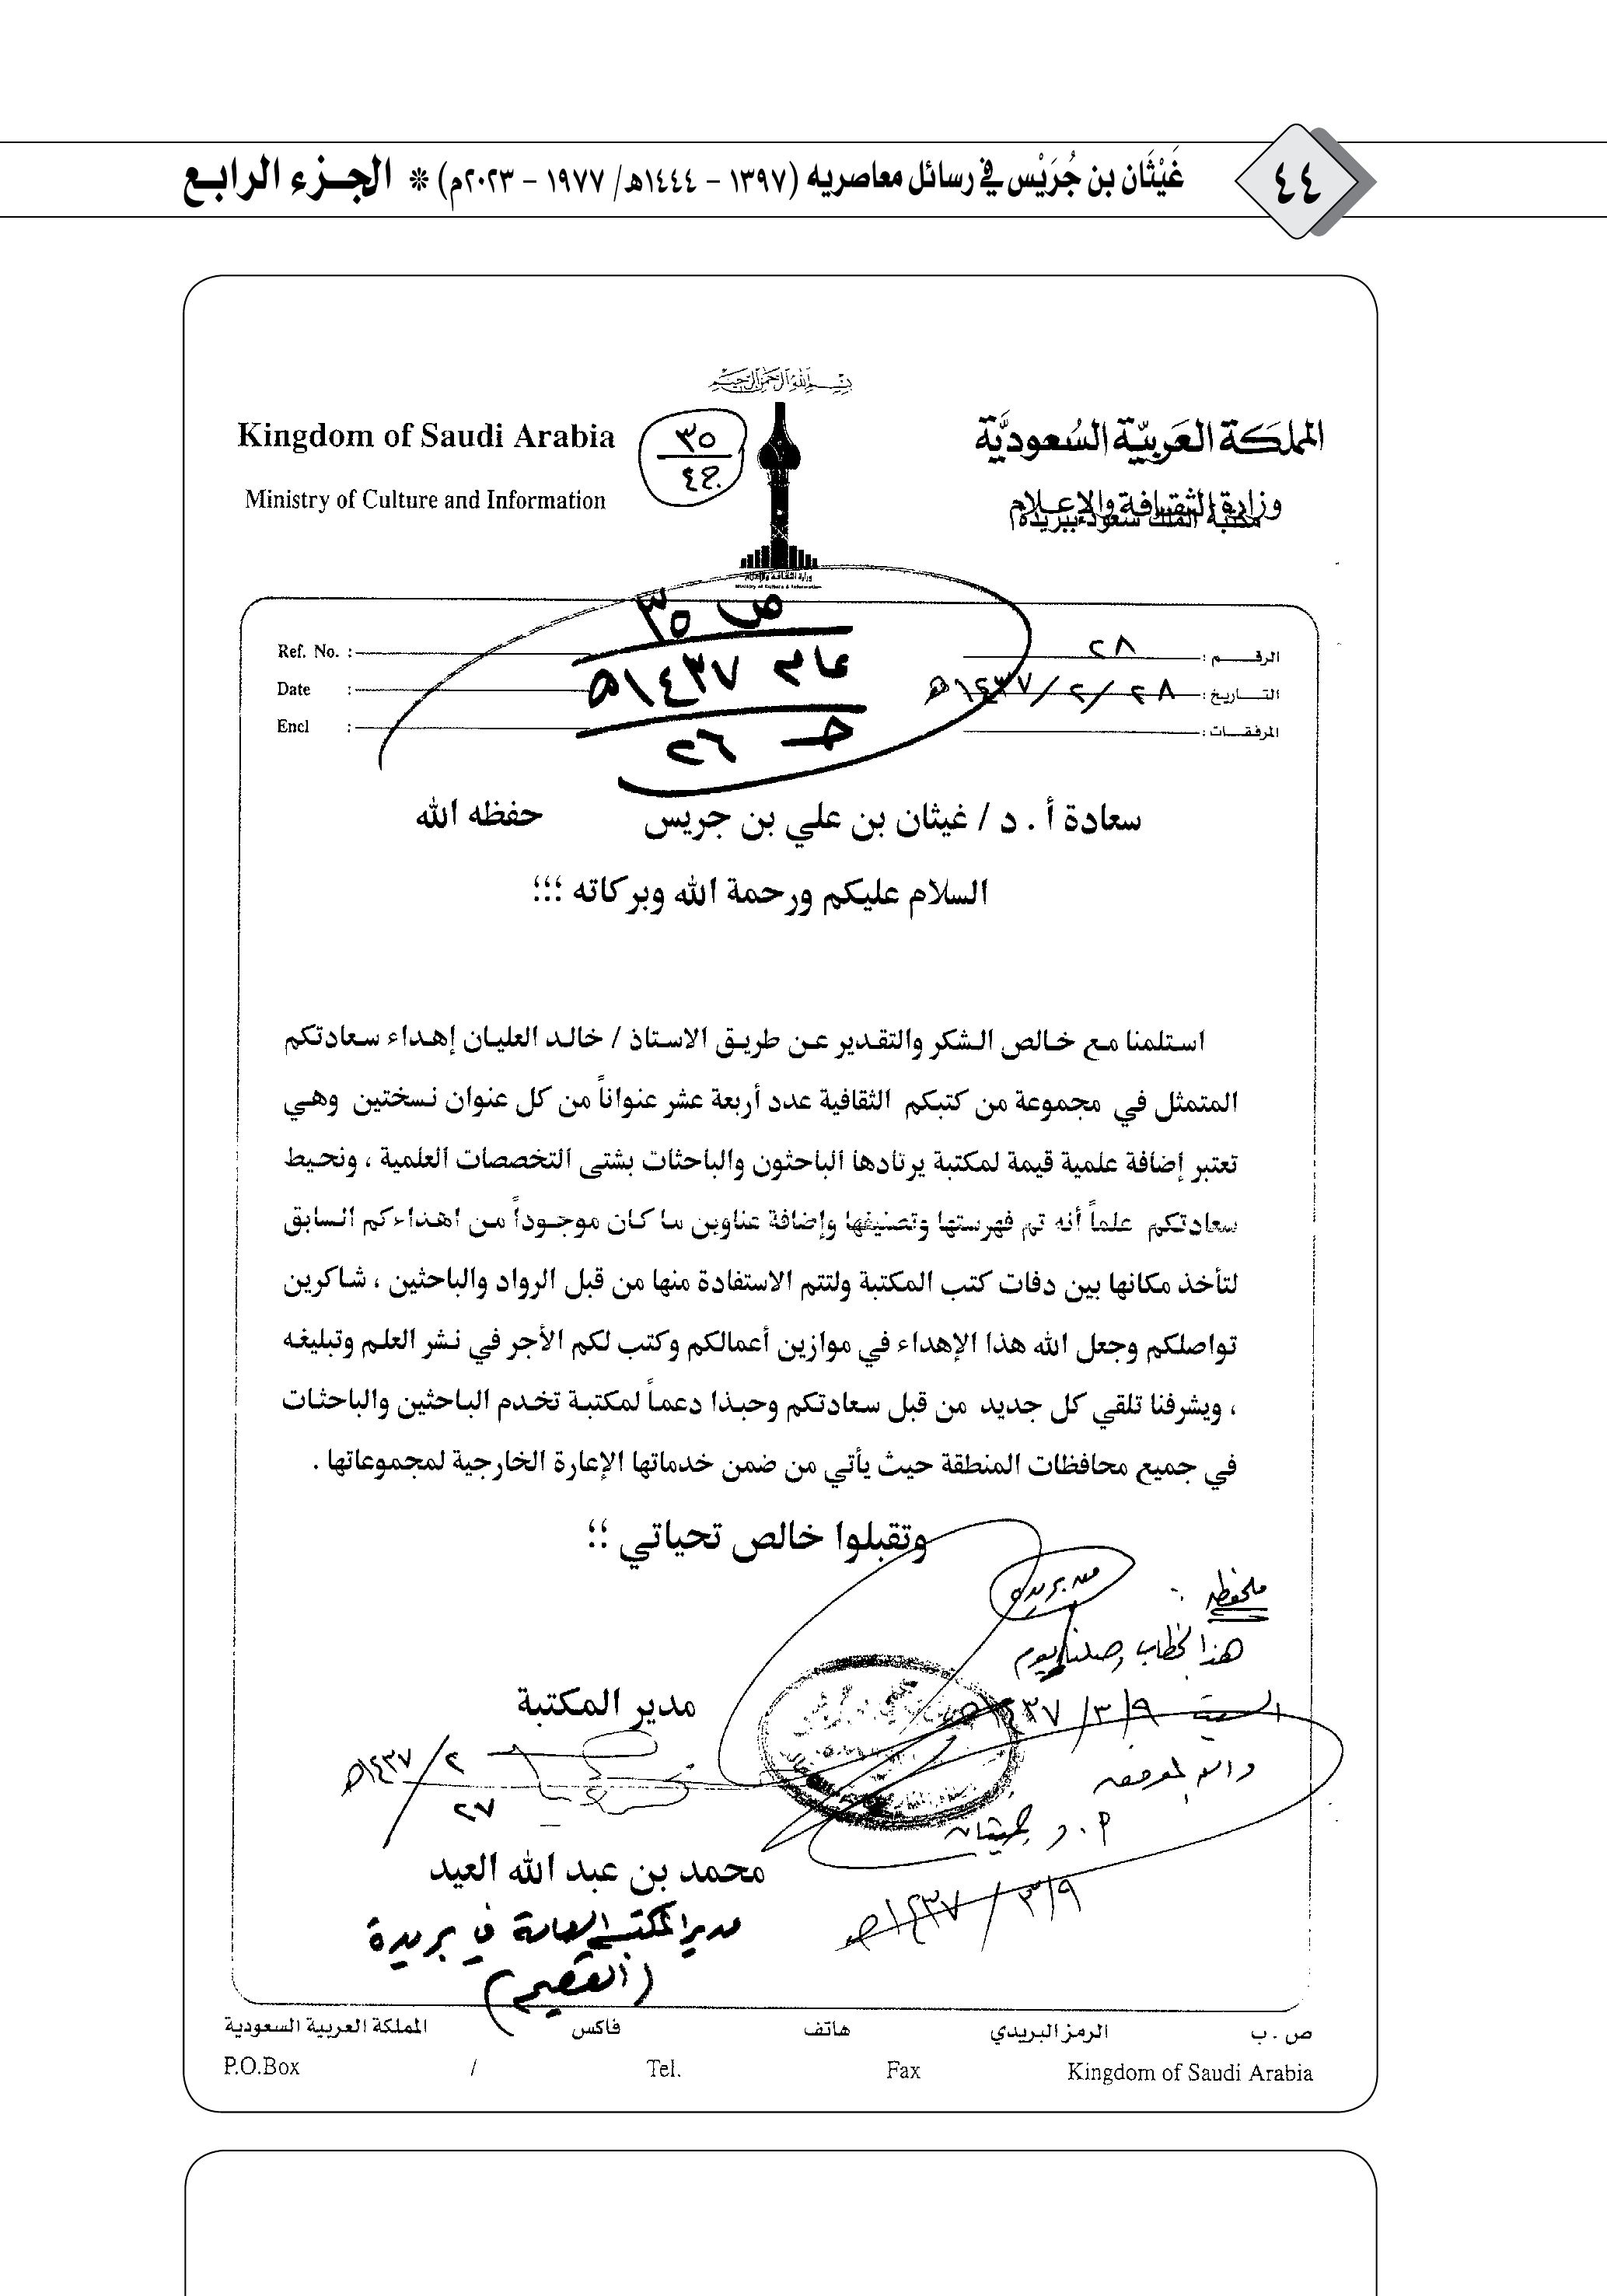 ٤٤
غَيْثَان بن جُرَيْس في رسائل معاصريه (١٣٩٧ - ١٤٤٤هـ/ ١٩٧٧ - ٢٠٢٣م) * الجزء الرابع
بسم الله الرحمن الرحيم
المملكة العربية السعودية
وزارة الثقافة والإعلام
مكتبة الملك سعود ببريدة
Kingdom of Saudi Arabia
Ministry of Culture and Information
٣٥
٤ج
وزارة الثقافة والإعلام
Ministry of Culture & Information
ص ٣٥
عام ١٤٣٧هـ
ج ٢٦
الرقم : ٢٨
التاريخ : ٢٨ / ٢ / ١٤٣٧هـ
المرفقات :
Ref. No. :
Date :
Encl :
سعادة أ . د / غيثان بن علي بن جريس حفظه الله
السلام عليكم ورحمة الله وبركاته ؛؛؛
استلمنا مع خالص الشكر والتقدير عن طريق الاستاذ / خالد العليان إهداء سعادتكم
المتمثل في مجموعة من كتبكم الثقافية عدد أربعة عشر عنواناً من كل عنوان نسختين وهي
تعتبر إضافة علمية قيمة لمكتبة يرتادها الباحثون والباحثات بشتى التخصصات العلمية ، ونحيط
سعادتكم علماً أنه تم فهرستها وتصنيفها وإضافة عناوين ما كان موجوداً من اهداءكم السابق
لتأخذ مكانها بين دفات كتب المكتبة ولتتم الاستفادة منها من قبل الرواد والباحثين ، شاكرين
تواصلكم وجعل الله هذا الإهداء في موازين أعمالكم وكتب لكم الأجر في نشر العلم وتبليغه
، ويشرفنا تلقي كل جديد من قبل سعادتكم وحبذا دعماً لمكتبة تخدم الباحثين والباحثات
في جميع محافظات المنطقة حيث يأتي من ضمن خدماتها الإعارة الخارجية لمجموعاتها .
وتقبلوا خالص تحياتي ؛؛
ملحوظة :
من بريدة
هذا الخطاب وصلنا يوم
السبت ٣/٩/ ١٤٣٧هـ
والله الموفق
أ . د غيثان
٣/٩ / ١٤٣٧هـ
مدير المكتبة
٢٧ / ٢ / ١٤٣٧هـ
محمد بن عبد الله العيد
مدير المكتبة العامة في بريدة
(القصيم)
ص . ب الرمز البريدي هاتف فاكس المملكة العربية السعودية
P.O.Box / Tel. Fax Kingdom of Saudi Arabia